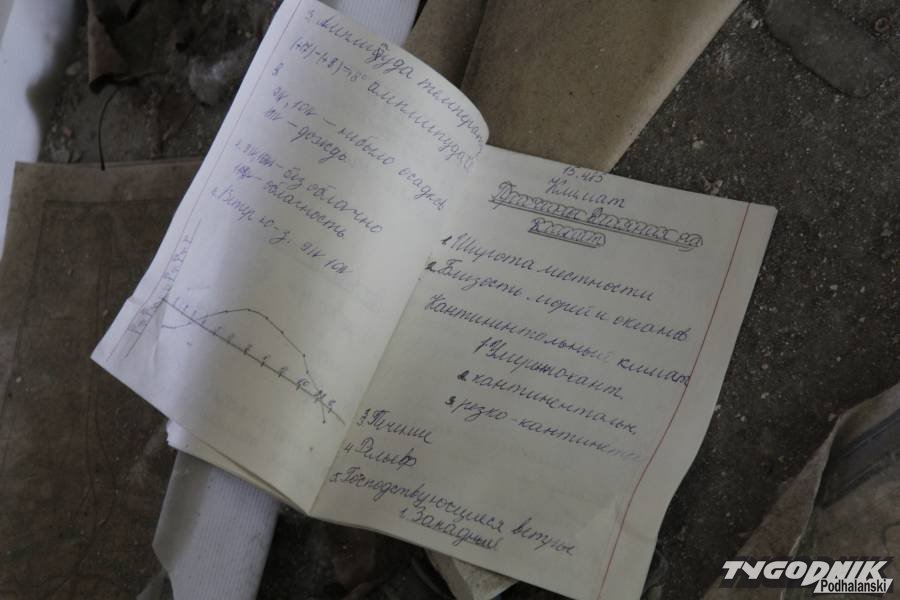 3. Амплитуда температу
(+17)-(+8)-18° амплитуда
3.
9ч, 10ч – небыло осадков
11ч – дождь.
2. 9ч 10ч – без облачно
облачность.
2. Ветер ю-з. 9ч 10ч
Климат
Причины влияния на
Климат
1. Широта местности
2. Близость морей и океанов.
Кантинентольный климат
1 Умеренокант.
2. кантинентальн.
3. резко-кантинентал
3. Течение
4. Рельеф
5. Господствующиеся ветры
1. Западные
TYGODNIK
Podhalański